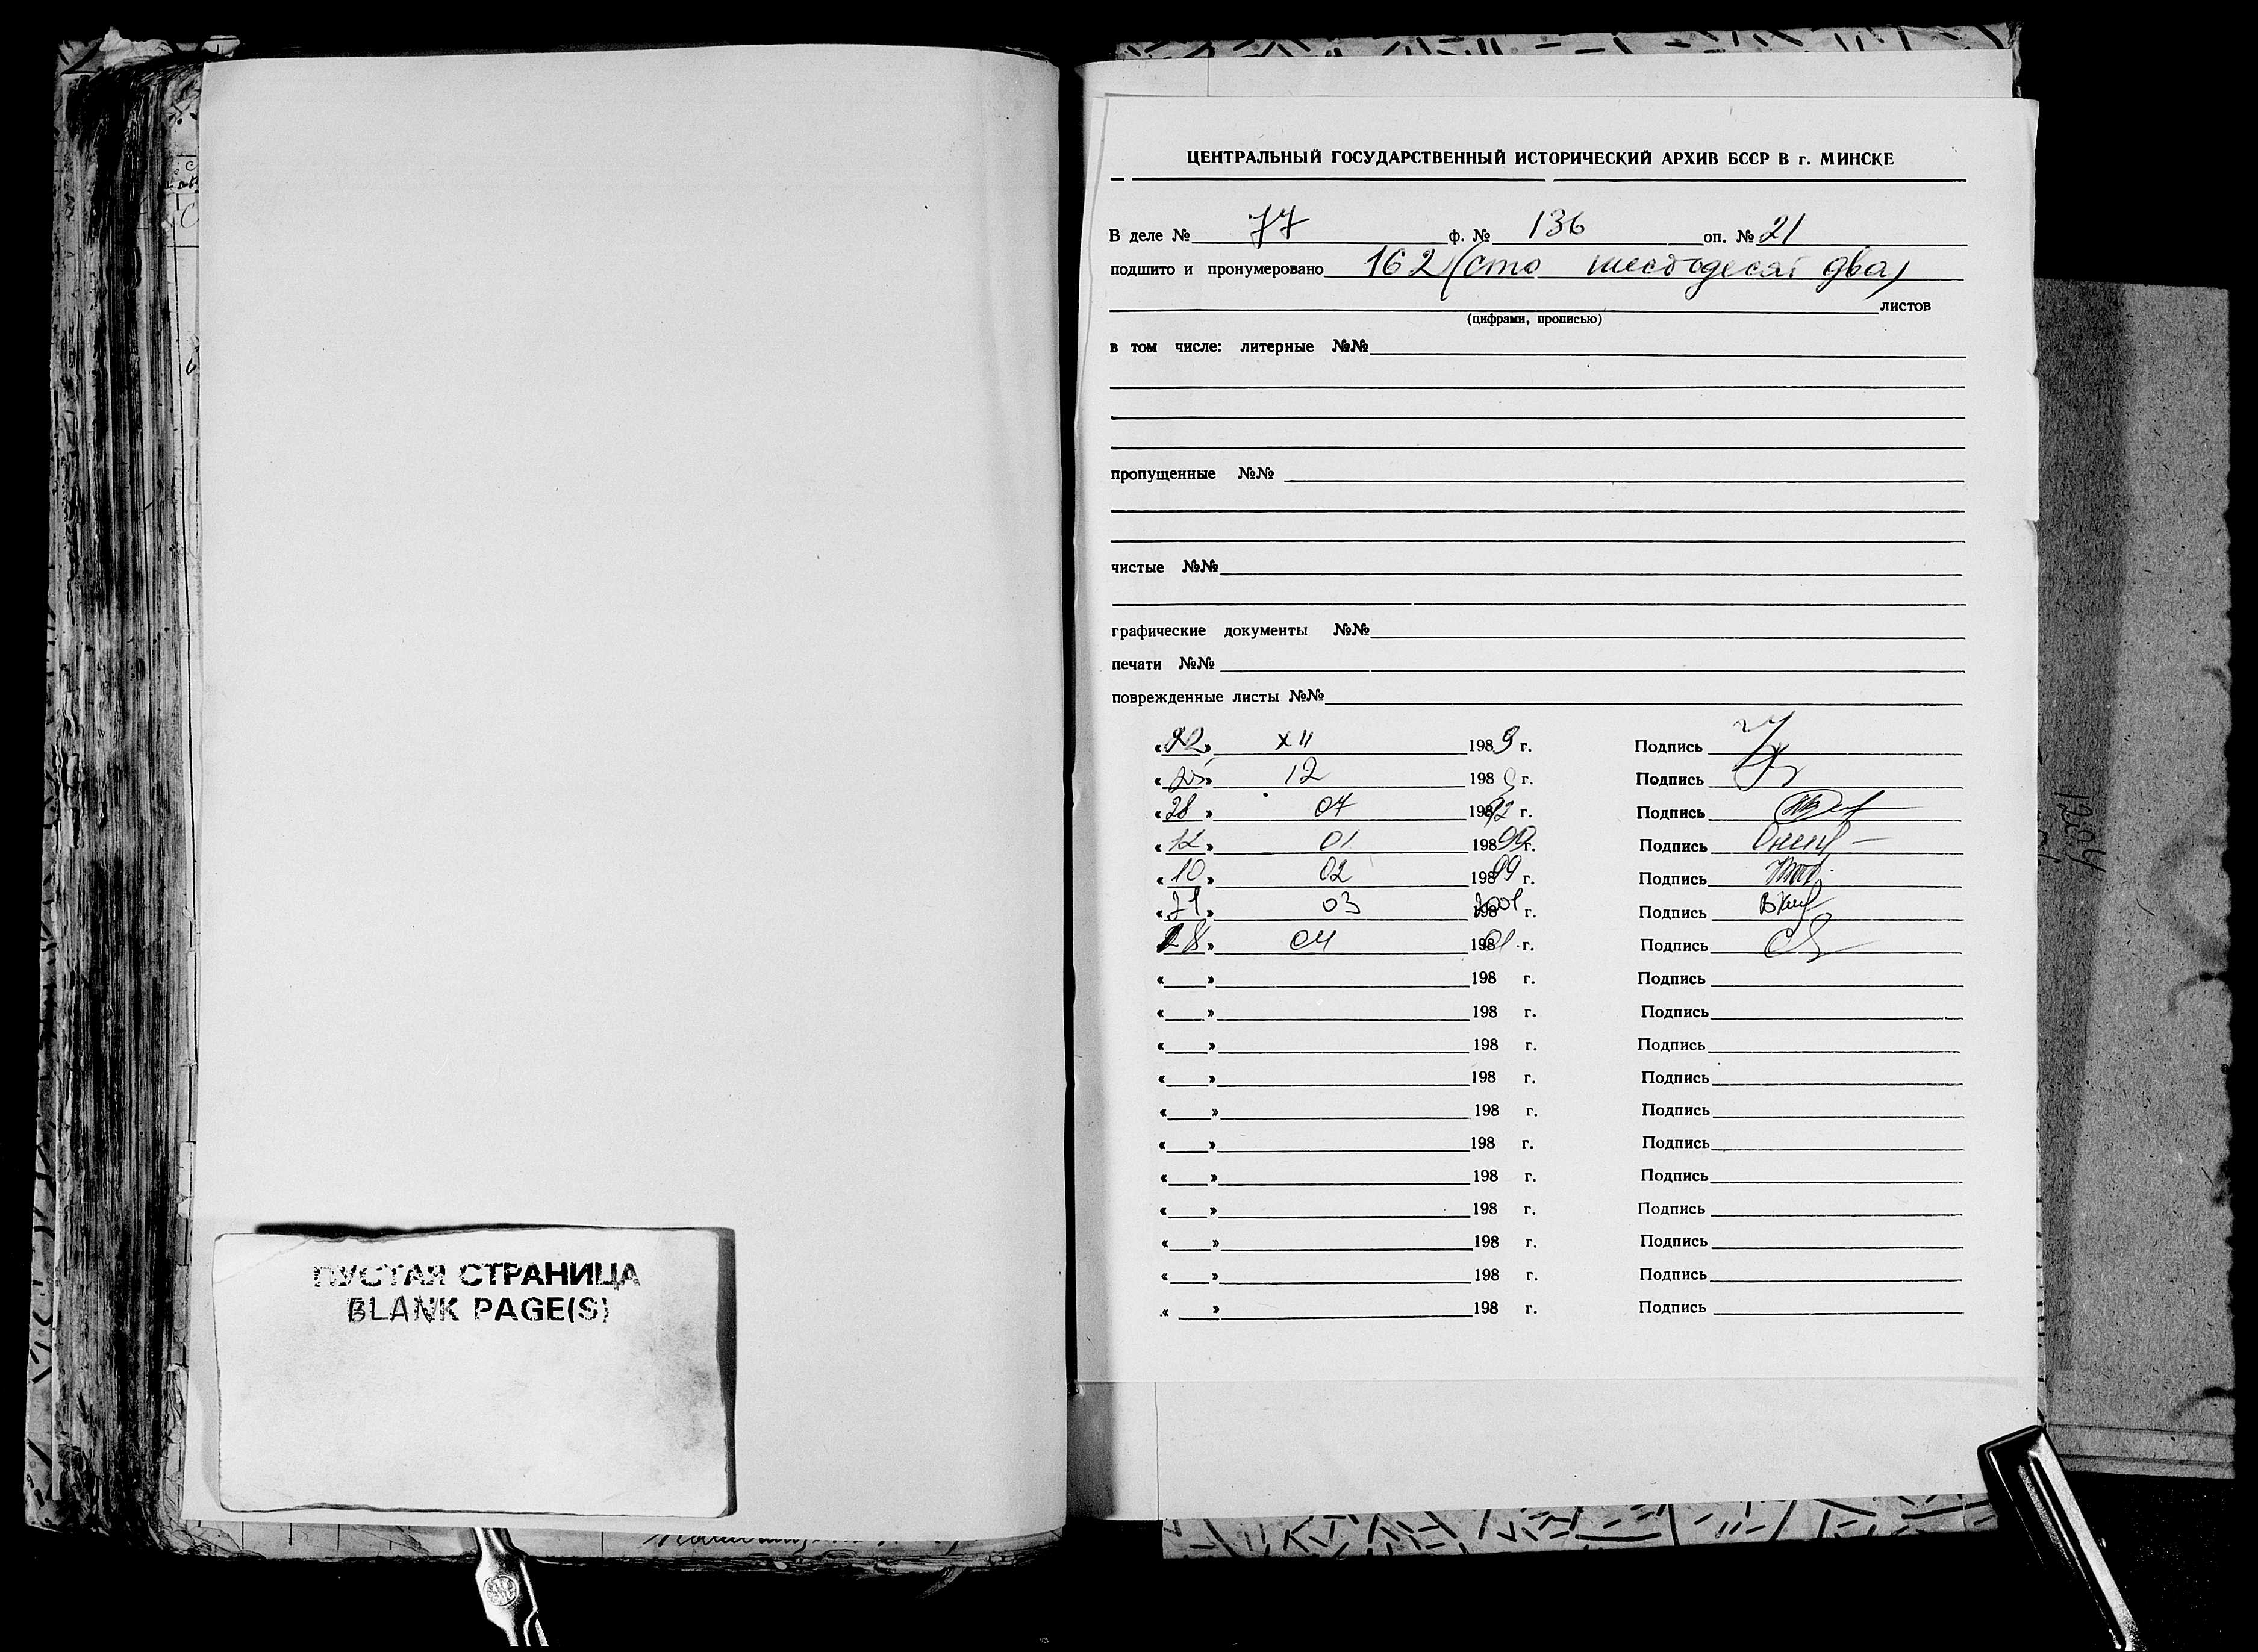 ПУСТАЯ СТРАНИЦА
BLANK PAGE(S)
ЦЕНТРАЛЬНЫЙ ГОСУДАРСТВЕННЫЙ ИСТОРИЧЕСКИЙ АРХИВ БССР В г. МИНСКЕ
В деле № 77 ф. № 136 оп. № 21
подшито и пронумеровано 162 (сто шестьдесят два)
листов
(цифрами, прописью)
в том числе: литерные №№
пропущенные №№
чистые №№
графические документы №№
печати №№
поврежденные листы №№
« » XII 1989 г. Подпись
« » 12 198 г. Подпись
«28» 07 1992 г. Подпись
«12» 01 1999 г. Подпись
«10» 02 1999 г. Подпись
«21» 03 2001 г. Подпись
«28» 04 01 г. Подпись
« » 198 г. Подпись
« » 198 г. Подпись
« » 198 г. Подпись
« » 198 г. Подпись
« » 198 г. Подпись
« » 198 г. Подпись
« » 198 г. Подпись
« » 198 г. Подпись
« » 198 г. Подпись
« » 198 г. Подпись
« » 198 г. Подпись